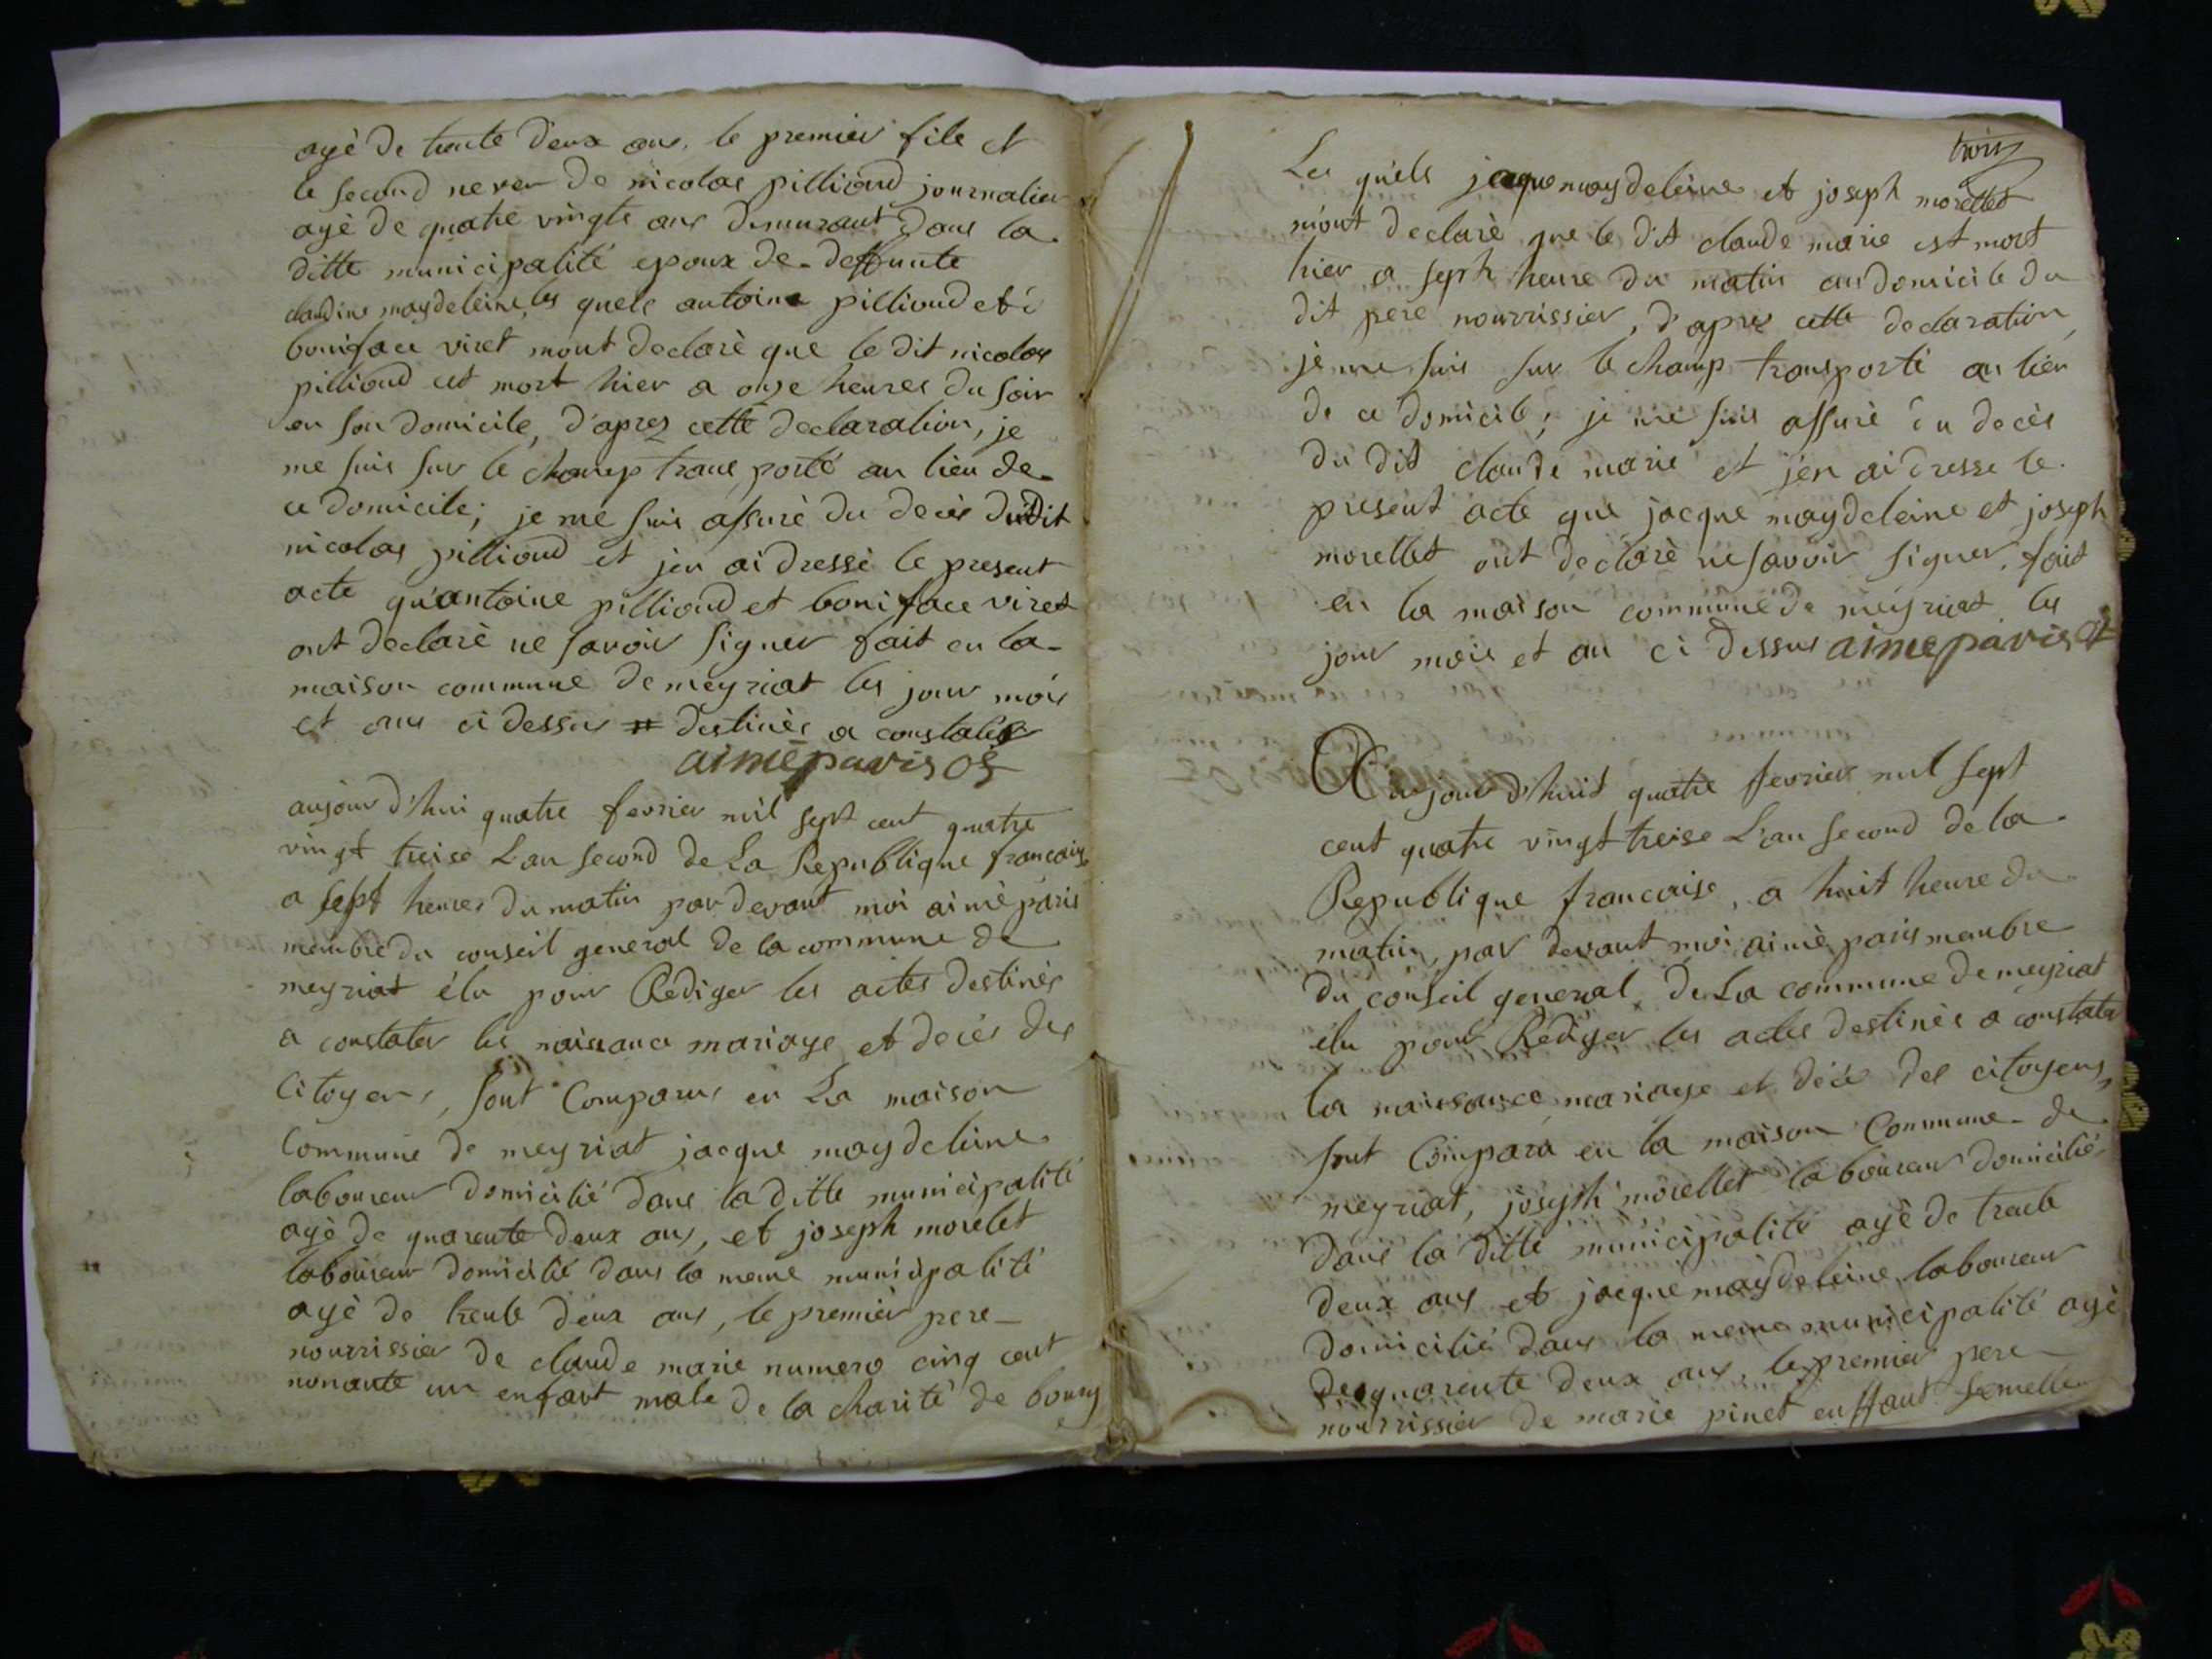 agè de trente deux ans, le premier fils et
le second neveu de nicolas pillioud journalier
agè de quatre vingts ans demurant dans la
ditte municipalité epoux de deffunte
claudine maydeleine, les quels antoine pillioud et
boniface viret mont declarè que le dit nicolas
pillioud est mort hier a onze heures du soir
en son domicile, d'apres cette declaration, je
me suis sur le champ trans porté au lieu de
ce domicile; je me suis assurè du decès dudit
nicolas pillioud et jen ai dressé le present
acte qu'antoine pillioud et boniface viret
ont declarè ne savoir signer fait en la
maison commune de meyriat les jour mois
et ans ci dessus # destinès a constater
aimé paris of
aujour d'hui quatre fevrier mil sept cent quatre
vingt treise L'an second de La Republique francaise
a sept heures du matin par devant moi aimè paris
membre du conseil general de la commune de
meyriat élu pour Rediger les actes destinès
a constater les naissance mariage et decès des
Citoyens, sont Comparus en La maison
Commune de meyriat jacque maydeleine
laboureur domicilié dans la ditte municipalité
agè de quarente deux ans, et joseph morelet
laboureur domicilié dans la meme municipalité
agè de trente deux ans, le premier pere
nourrissier de claude marie numero cinq cent
nonante un enfant male de la charité de bourg
trois
Les quels jaque maydeleine et joseph morellet
m'ont declarè que le dit claude marie est mort
hier a seph heure du matin au domicile du
dit pere nourrissier, d'apres cette declaration
je me suis sur le champ transporté au lieu
de ce domicile; je me suis assurè du decès
du dit claude marie et j'en ai dresse le
present acte que jacque maydeleine et joseph
morellet ont declarè ne savoir signer, fait
en la maison commune de meyriat les
jour mois et an ci dessus aime paris of
Aujourd'huit quatre fevrier mil sept
cent quatre vingt treise L'an second de la
Republique francaise, a huit heure du
matin, par devant moi aimè paris membre
du conseil general de La commune de meyriat
élu pour Rediger les actes destinès a constater
la naissance mariage et décè des citoyens,
sont Compara en la maison Commune de
meyriat, joseph morellet laboureur domicilié
dans la ditte municipalité agè de trente
deux ans et jacque maydeleine laboureur
domicilié dans la meme municipalité agè
de quarente deux ans, le premier pere
nourrissier de marie pinet enffant femelle